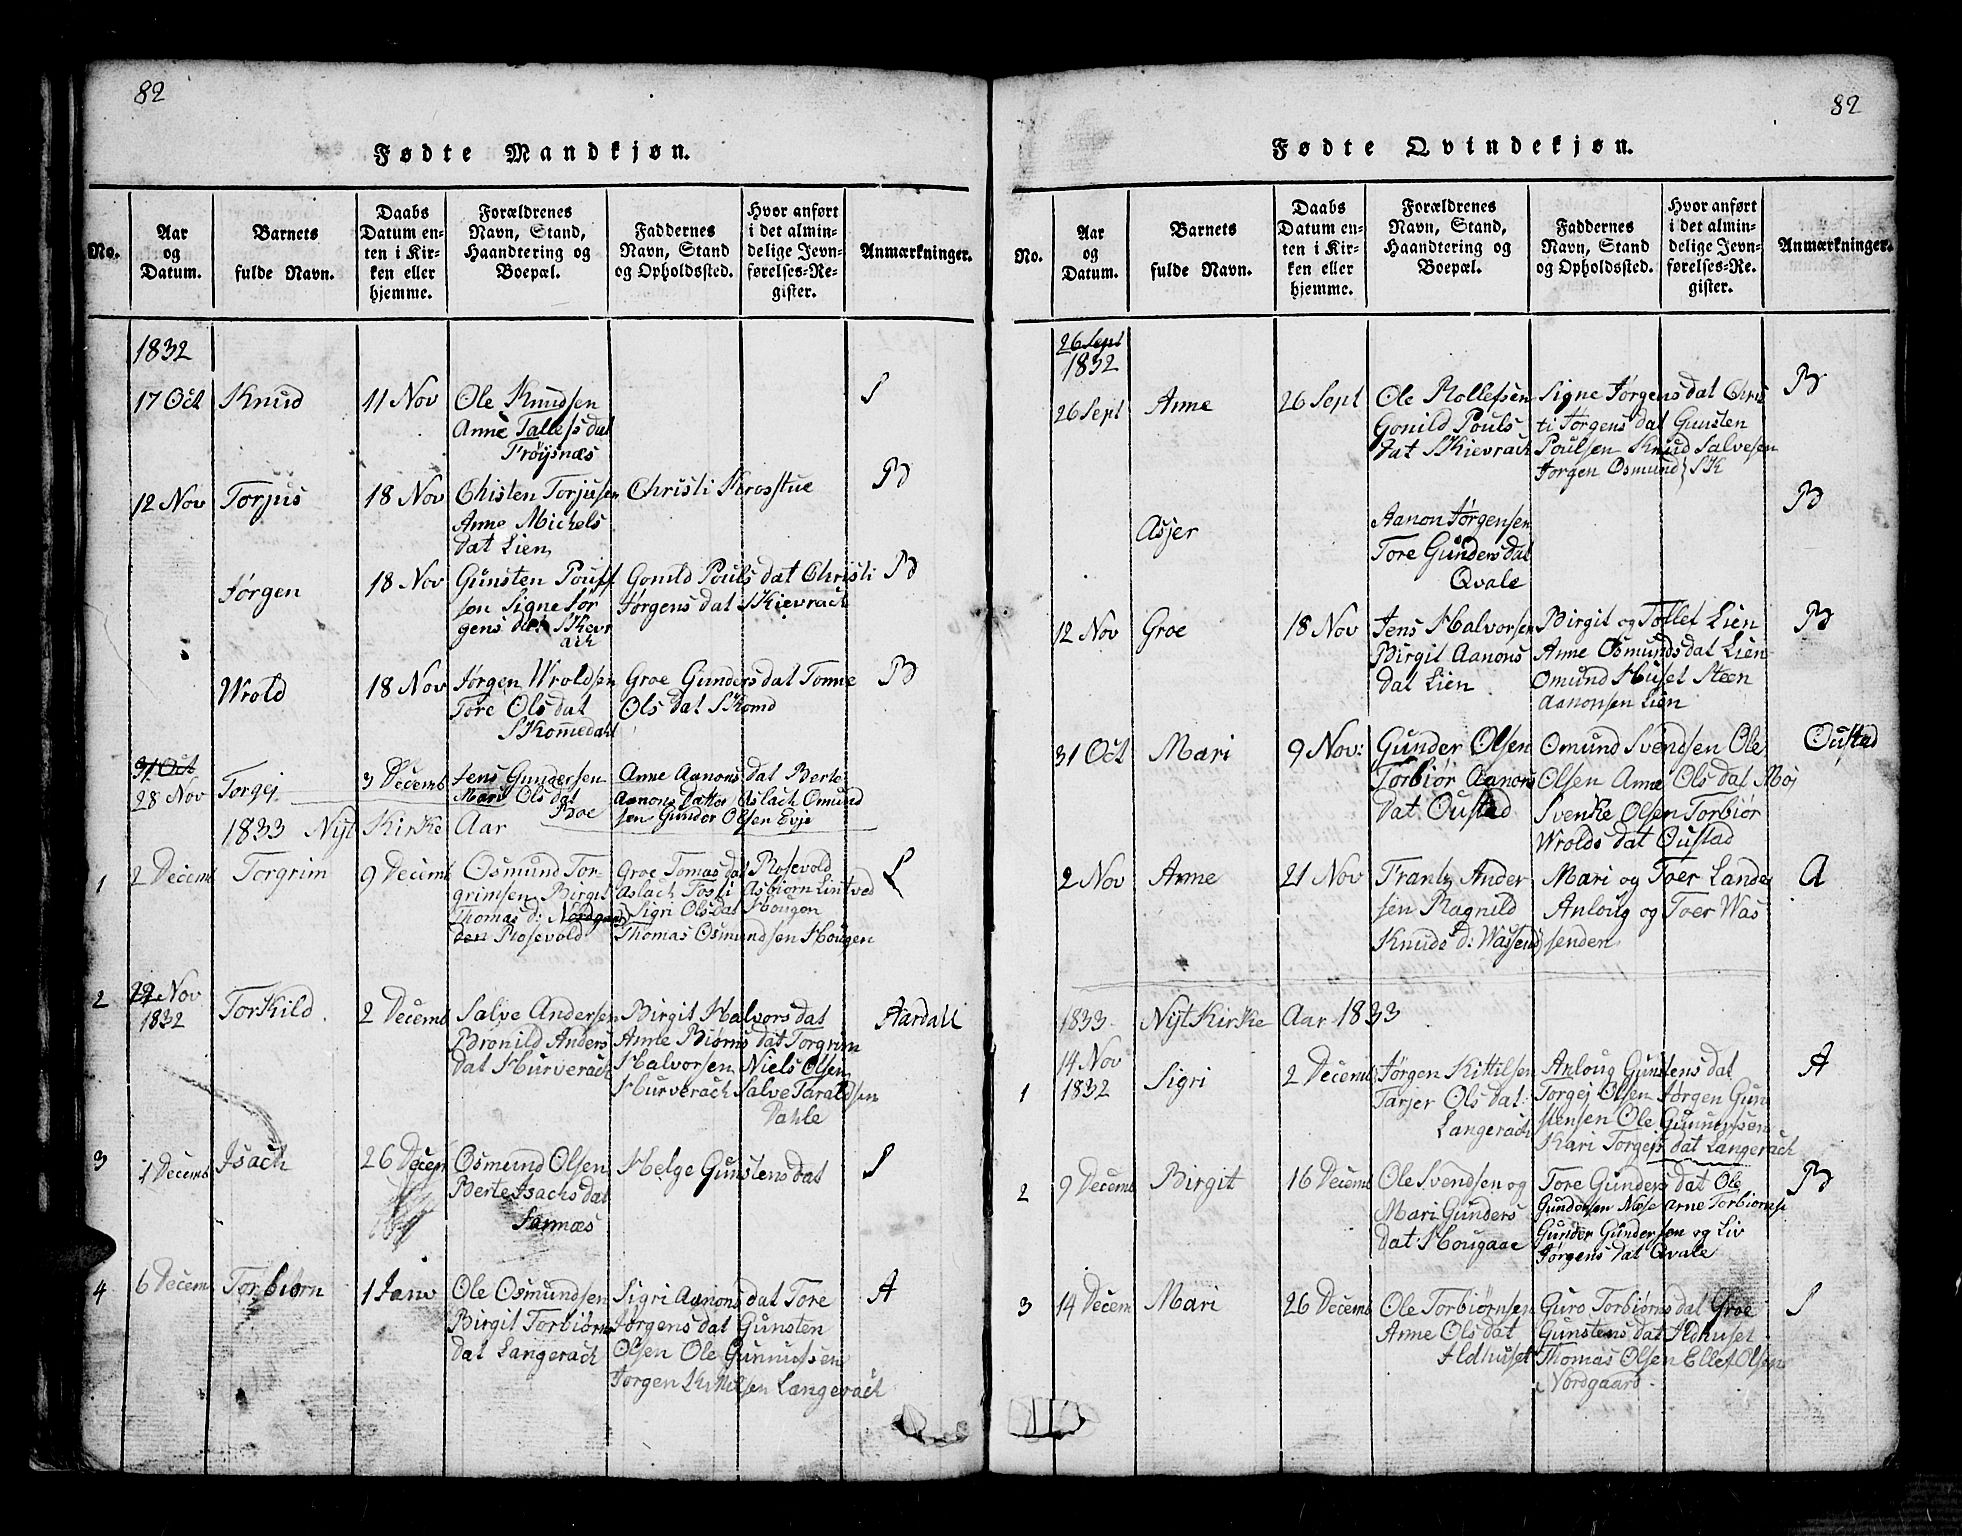 82
Fødte Mandkjøn.
No.
Aar
og
Datum.
Barnets
fulde Navn.
Daabs
Datum en-
ten i Kir-
ken eller
hjemme.
Forældrenes
Navn, Stand,
Haandtering og
Boepæl.
Faddernes
Navn, Stand
og Opholdssted.
Hvor anført
i det almin-
delige Jevn-
førelses-Re-
gister.
Anmærkninger.
1832
17 Oct
Knud
11 Nov
Ole Knudsen
Anne Tallefs dat
Frøysnæs
S
12 Nov
Torjus
18 Nov
Chisten Torjusen
Anne Michels
dat Lien
Christi Krosstue
B
Jørgen
18 Nov
Gunsten Poulf
sen Signe Jør
gens dat SKievr
ach
Gonild Pouls dat Christi
Jørgens dat SKievrach
B
Wrold
18 Nov
Jørgen Wroldsen
Tore Ols dat
SKomedahl
Groe Gunders dat Tonne
Ols dat SKomd
B
31 Oct
28 Nov
Torgej
3 Decemb
Jens Gundersen
Mari Ols dat
Boe
Anne Aanons dat Berte
Aanons datter Aslach Omund
sen Gunder Olsen Evje
1833 Nyt Kirke Aar
1
2 Decemb
Torgrim
9 Decemb
Osmund Tor-
grimsen Birgit
Thomas d: Nordgaar
den Rosevold
Groe Tomas dat Rosevold
Aslach Tosti Asbiørn Lintved
Sigri Ols dat Hougen
Thomas Osmundsen Hougen
L
2
22 Nov
1832
Torkild
2 Decemb
Salve Andersen
Bronild Anders
dat Hurverach
Birgit Halvors dat
Anne Biørns dat Torgrim
Halvorsen Niels Olsen
Hurverach Salve Taraldsen
Dahle
Aardall
3
1 Decemb
Isach
26 Decem
Osmund Olsen
Berte Isachs dat
Sannæs
Helge Gunstens dat
S
4
6 Decem
Torbiørn
1 Janv
Ole Osmundsen
Birgit Torbiørns
dat Langerach
Sigri Aanons dat Tore
Jørgens dat Gunsten
Olsen Ole Gunnufsen
Jørgen Kittilsen Langerach
A
82
Fødte Qvindekjøn.
No.
Aar
og
Datum.
Barnets
fulde Navn.
Daabs
Datum en-
ten i Kir-
ken eller
hjemme.
Forældrenes
Navn, Stand,
Haandtering og
Boepæl.
Faddernes
Navn, Stand
og Opholdssted.
Hvor anført
i det almin-
delige Jevn-
førelses-Re-
gister.
Anmærkninger.
26 Sept
1832
26 Sept
Anne
26 Sept
Ole Rollefsen
Gonild Pouls
dat SKievrach
Signe Jørgens dat Chris
ti Jørgens dat Gunsten
Poulsen Knud Salvesen
Jørgen Osmunds SK
B
Asjer
Aanon Jørgensen
Tore Gunders dat
Qvale
B
12 Nov
Groe
18 Nov
Jens Halvorsen
Birgit Aanons
dat Lien
Birgit og Tollef Lien
Anne Osmunds dat Lien
Omund Huset Steen
Aanonsen Lien
B
31 Oct
Mari
9 Nov:
Gunder Olsen
Torbiør Aanons
dat Oustad
Omund Svendsen Ole
Olsen Anne Ols dat Moj
Svenke Olsen Torbiør
Wrolds dat Oustad
Oustad
2 Nov
Anne
21 Nov
Frantz Ander
sen Ragnild
Knuds d: Wassend
Mari og Toer Lande
Anloug og Toer Was
senden
A
1833 Nyt Kirke Aar 1833
1
14 Nov
1832
Sigri
2 Decemb
Jørgen Kittilsen
Tarjer Ols dat
Langerach
Anloug Gunstens dat
Torgej Olsen Jørgen Gun
stensen Ole Gunnufsen
Kari Torgejs dat Langerach
A
2
9 Decemb
Birgit
16 Decemb
Ole Svendsen og
Mari Gunders
dat Hougaae
Tore Gunders dat Ole
Gundersen Næse Arne Torbiørns
Gunder Gundersen og Liv
Jørgens dat Qvale
B
3
14 Decem
Mari
26 Decemb
Ole Torbiørnsen
Anne Ols dat
Ildhuset
Guro Torbiørns dat Groe
Gunstens dat Ildhuset
Thomas Olsen Ellef Olsen
Nordgaard
S